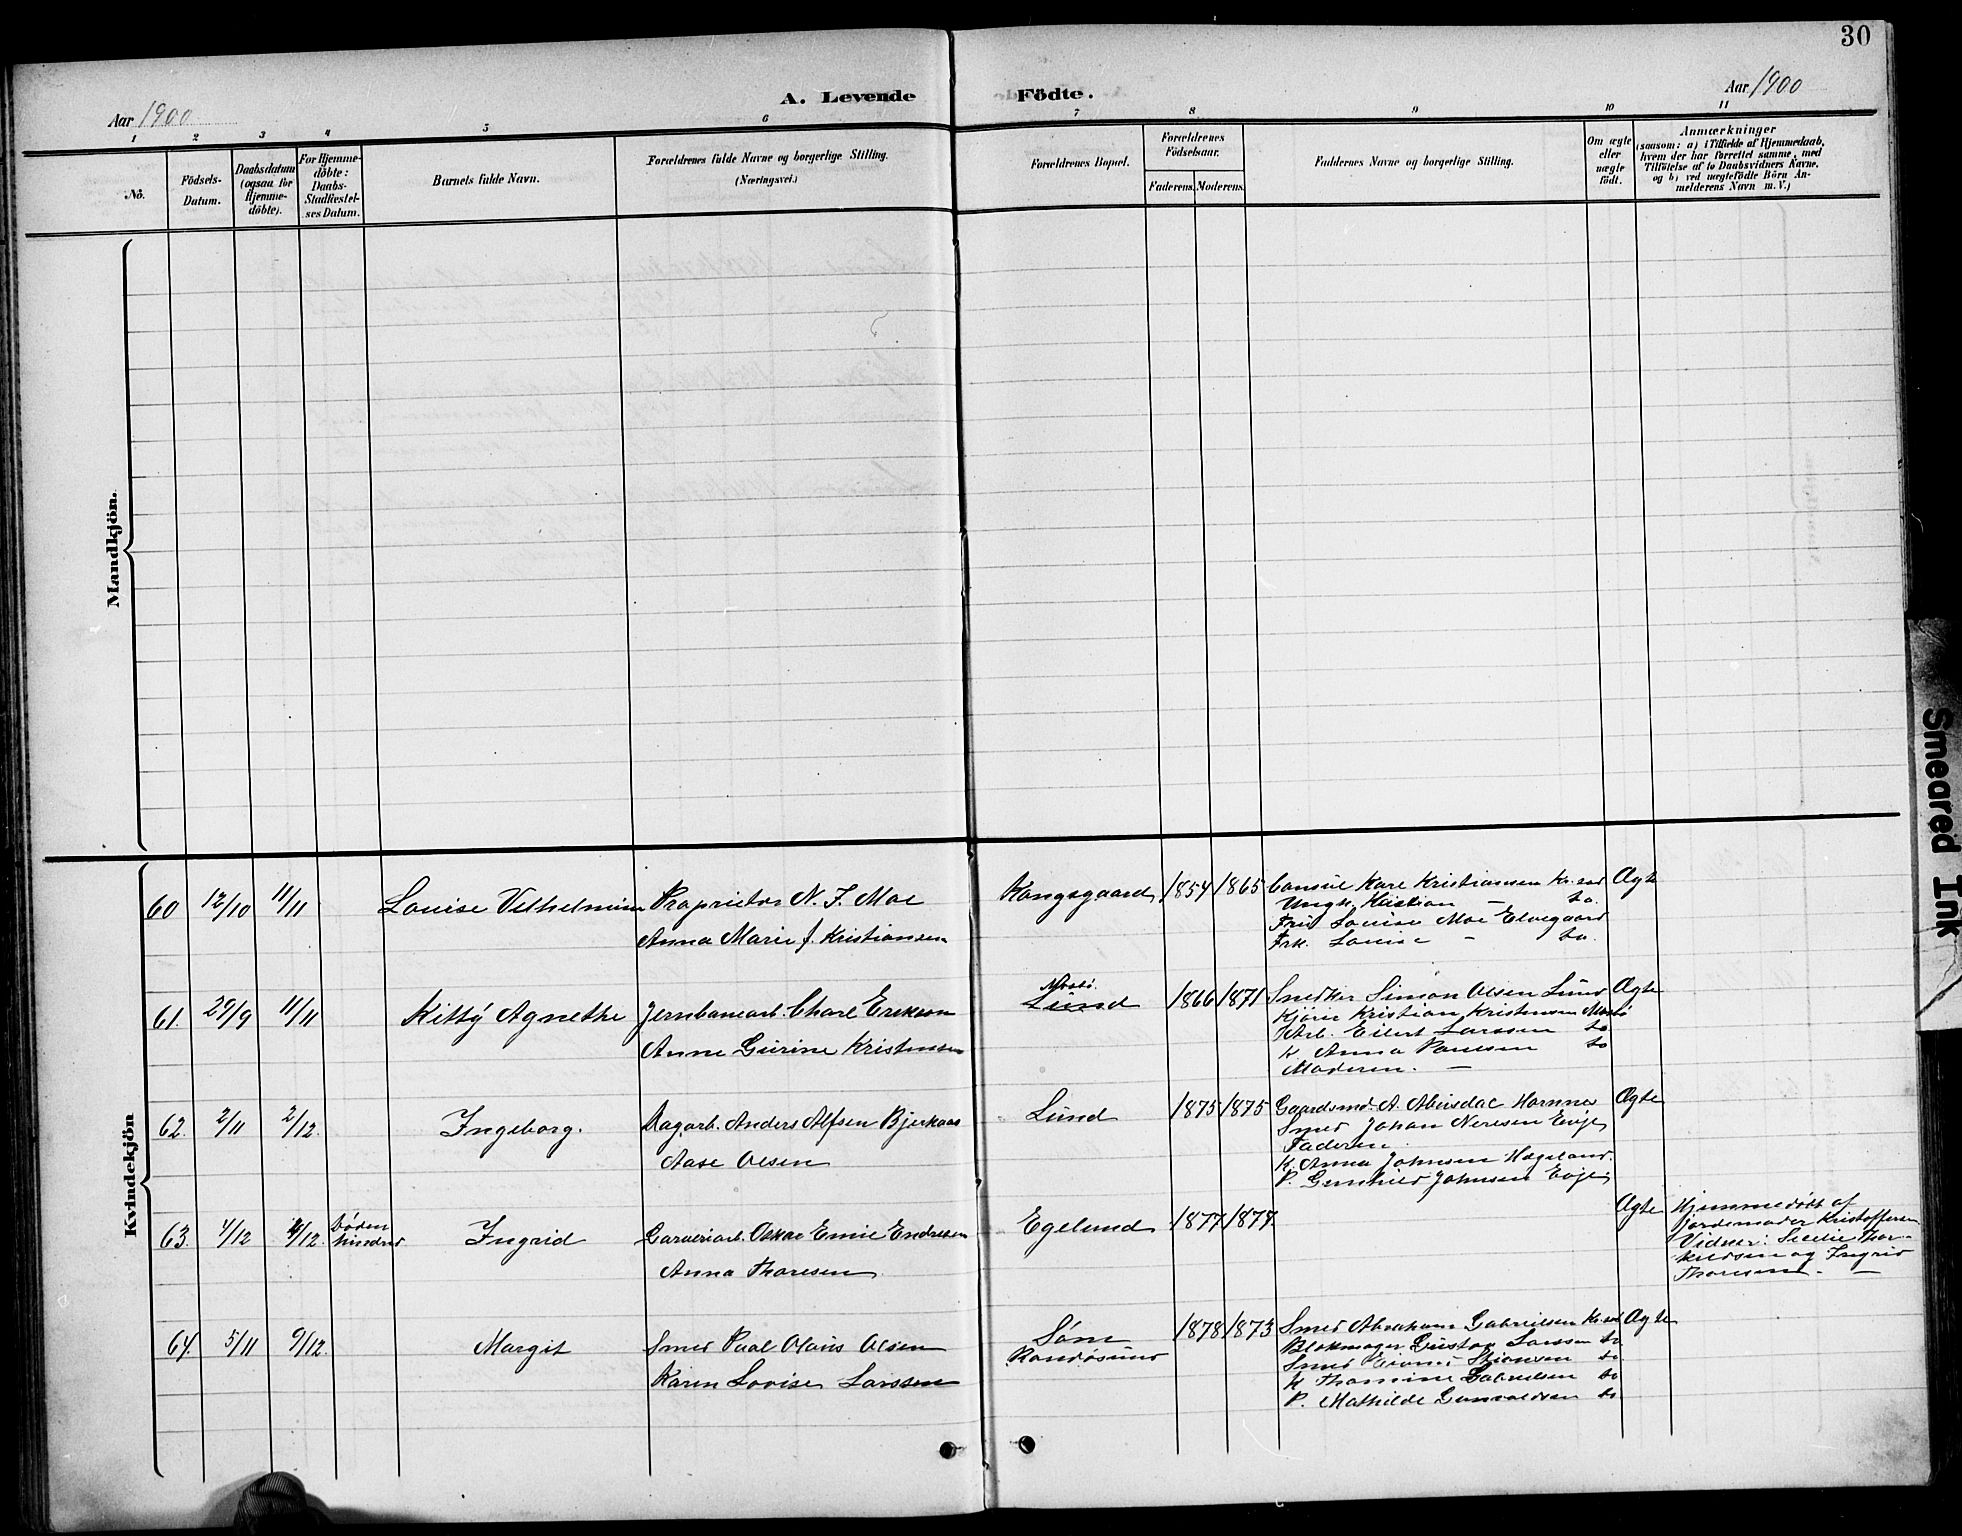 30
Aar 1900
A. Levende Födte.
Aar 1900
1 2 3 4 5 6 7 8 9 10 11
Nö.
Födsels-
Datum.
Daabsdatum
(ogsaa for
Hjemme-
döbte).
For Hjemme-
döbte:
Daabs-
Stadfæstel-
ses Datum.
Barnets fulde Navn.
Forældrenes fulde Navne og borgerlige Stilling.
(Næringsvei.)
Forældrenes Bopæl.
Forældrenes
Födselsaar.
Faderens. Moderens.
Faddernes Navne og borgerlige Stilling.
Om ægte
eller
uægte
födt.
Anmærkninger
(saasom: a) i Tilfælde af Hjemmedaab,
hvem der har forrettet samme, med
Tilföielse af to Daabsvidners Navne.
og b) ved uægtefödte Börn An-
melderens Navn m. V.)
Mandkjön.
Kvindekjön
60 12/10 11/11 Louise Vilhelmine Proprietær N. J. Moe
Anna Marie f. Kristiansen
Kongsgaard 1854 1865
Consul Karl Kristiansen Kr.sand
Ungk. Kristian — do.
Fru Louise Moe Elvegaard
Frk. Louise — do.
Ægte
61. 29/9 11/11 Kitty Agnethe Jernbanearb. Charl Erikson
Anne Gurine Kristensen
Lund 1866 1871
Snedker Simon Olsen Lund
Kjører Kristian Kristensen
Arb. Eilert Larssen do
K. Anna Paulsen do
Moderen. —
Ægte
62. 2/11 2/12. Ingeborg. Dagarb. Anders Alfsen Bjerkaas
Aase Olsen
Lund 1875 1875
Gaardsmd. A. Abusdal Hornnes
Smed Johan Neresen Evje,
Faderen.
K. Anna Johnsen Hægeland.
P. Gunhild Johnsen Evje,
Ægte
63. 4/12 4/12. Døden
hindred
Ingrid Garveriarb. Oskar Emil Endresen
Anna Thoresen
Egelund 1877 1874
Ægte
Hjemmedøbt af
Jordemoder Kristoffersen
Vidner: Secilie Thor-
kildsen og Ingrid
Thoresen. —
64. 5/11 9/12. Margit Smed Paal Olaus Olsen
Karen Lovise Larssen
Søm
Randøsund
1878 1873
Smed Abraham Gabrielsen Kr.sd
Blokmager Gustav Larssen do
Smed Stiansen do.
K Thomine Gabrielsen do
P. Mathilde Gunvaldsen do.
Ægte
Smeared Ink